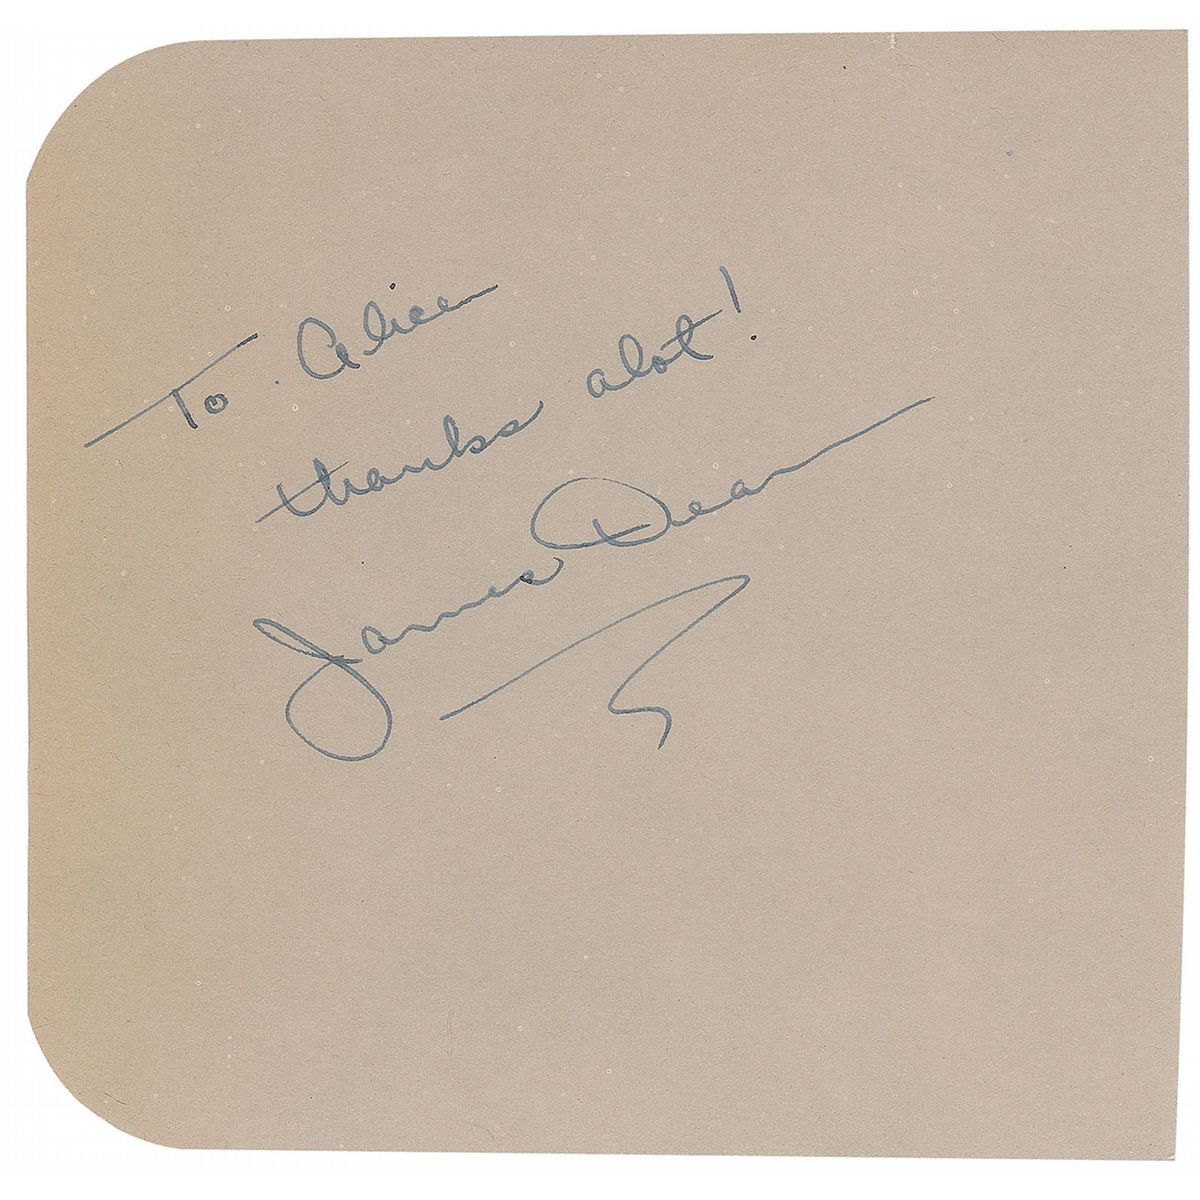 To Alice
thanks alot!
James Dean